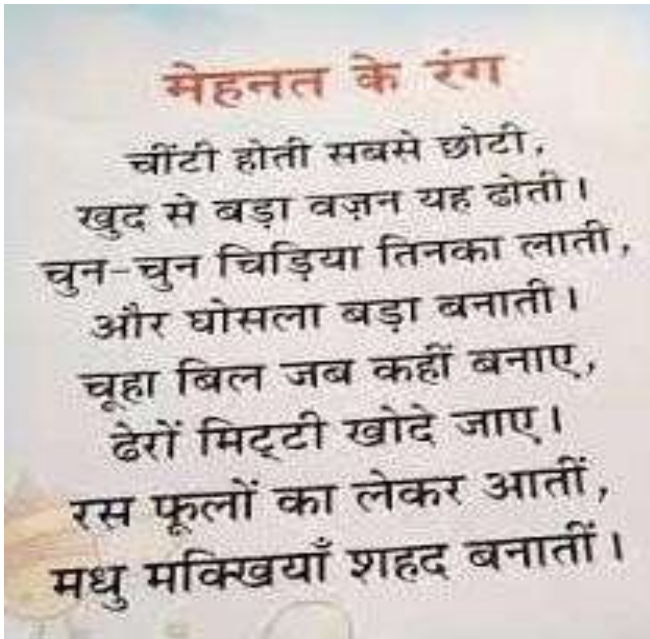 मेहनत के रंग
चींटी होती सबसे छोटी,
खुद से बड़ा वज़न यह ढोती।
चुन-चुन चिड़िया तिनका लाती,
और घोसला बड़ा बनाती।
चूहा बिल जब कहीं बनाए,
ढेरों मिट्टी खोदे जाए।
रस फूलों का लेकर आतीं,
मधु मक्खियाँ शहद बनातीं।